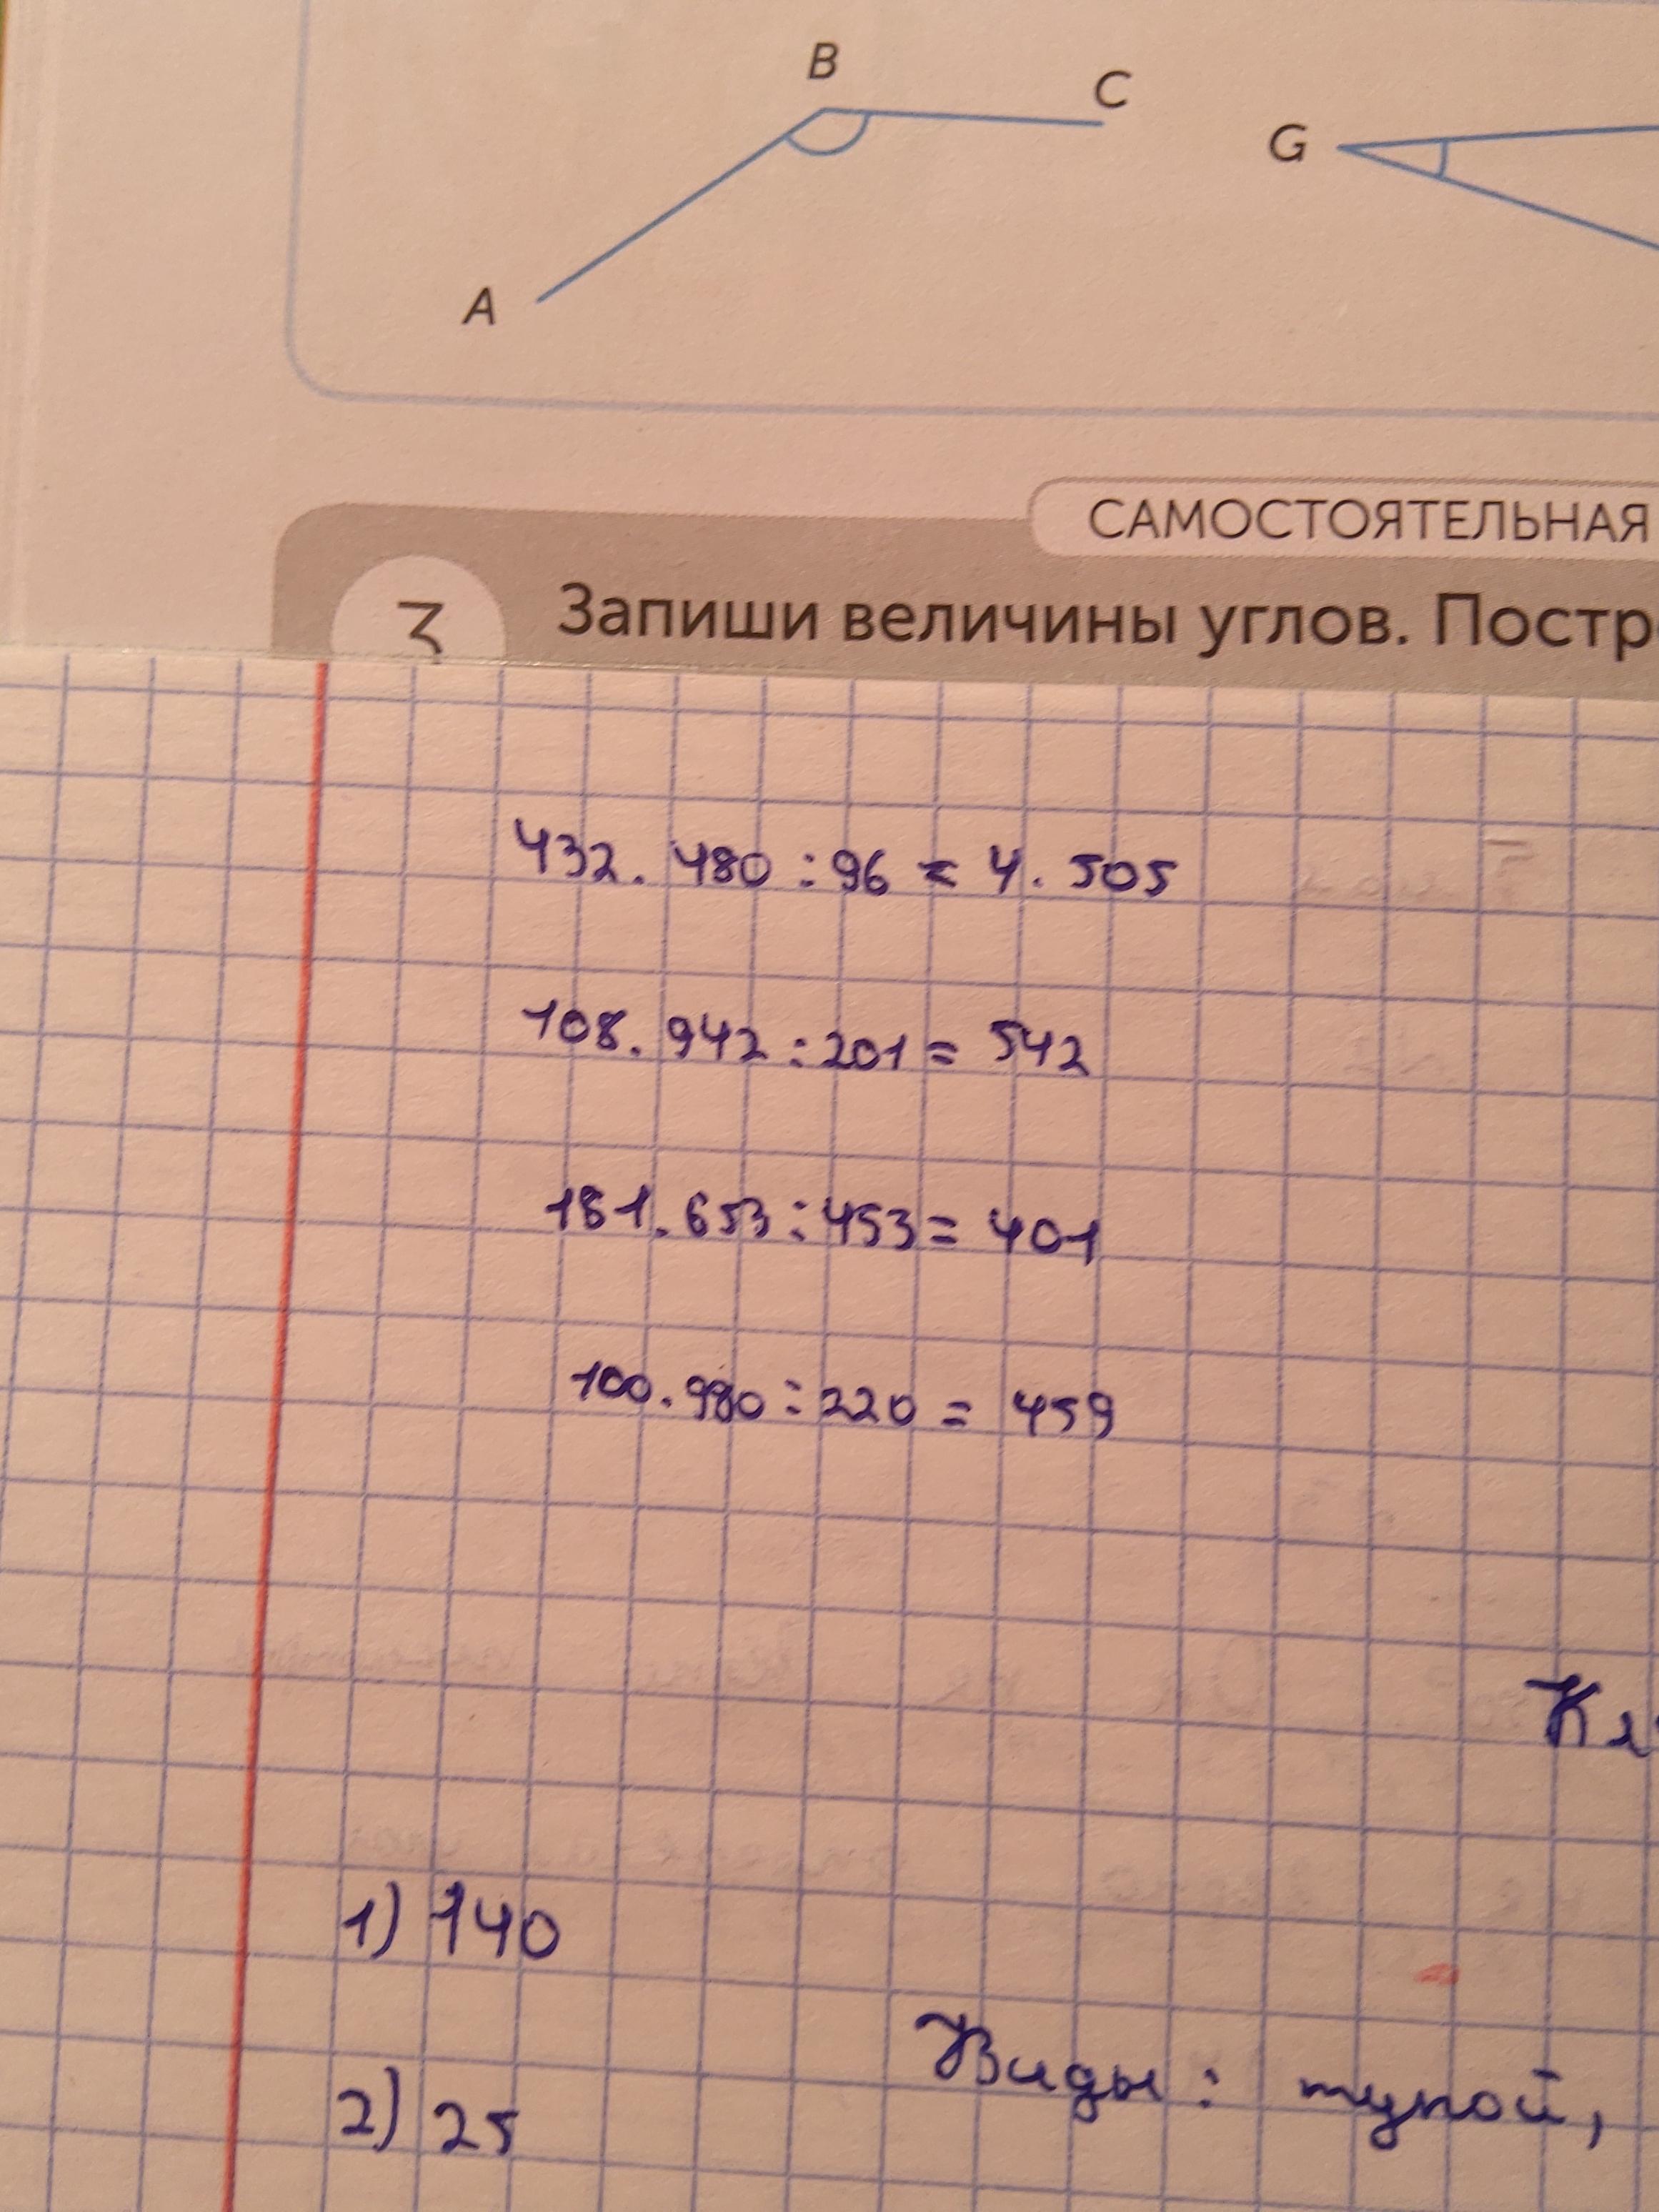 B
C
G
A
САМОСТОЯТЕЛЬНАЯ
3 Запиши величины углов. Постр
432.480:96 = 4.505
108.942:201 = 542
181.653:453 = 401
100.980:220 = 459
1) 140
Виды: тупой,
2) 25